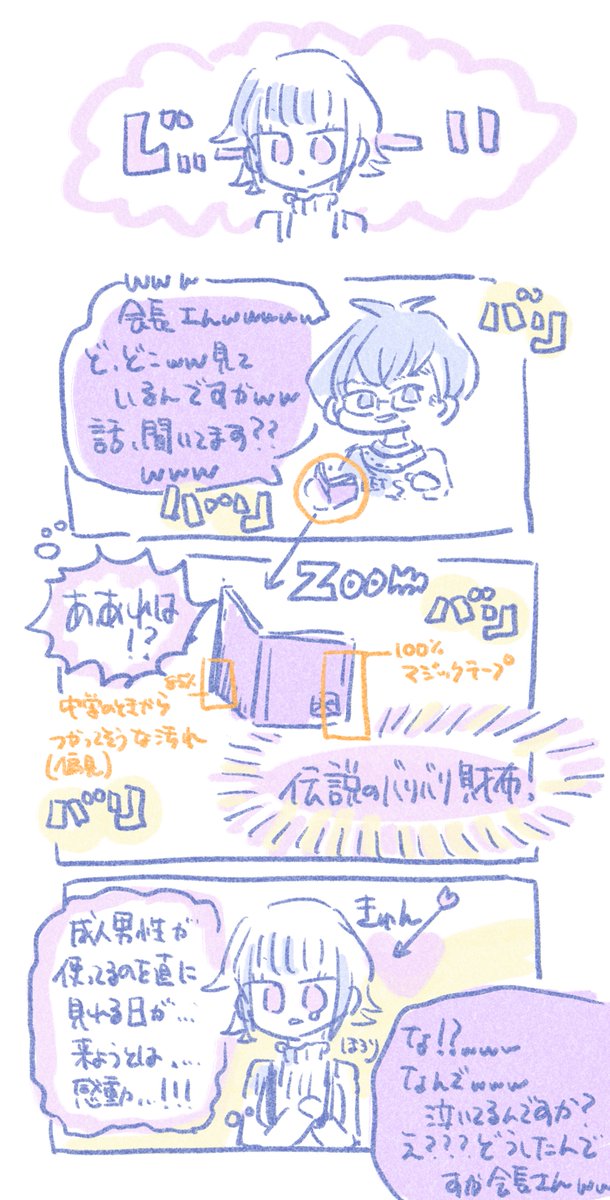 じーーい
バリ
www
会長さんwwwww
ど、どこww見て
いるんですかww
話、聞いてます??
www
バリ
ZOOM
バリ
ああれは
!?
100%
マジックテープ
85%
中学のときから
つかってそうな汚れ
(偏見)
伝説のバリバリ財布!
バリ
成人男性が
使ってるのを直に
見れる日が…
来ようとは、…
感動…!!!
きゅん
ほろり
な!?www
なんでwww
泣いてるんですか?
え???どうしたんで
すか会長さんww